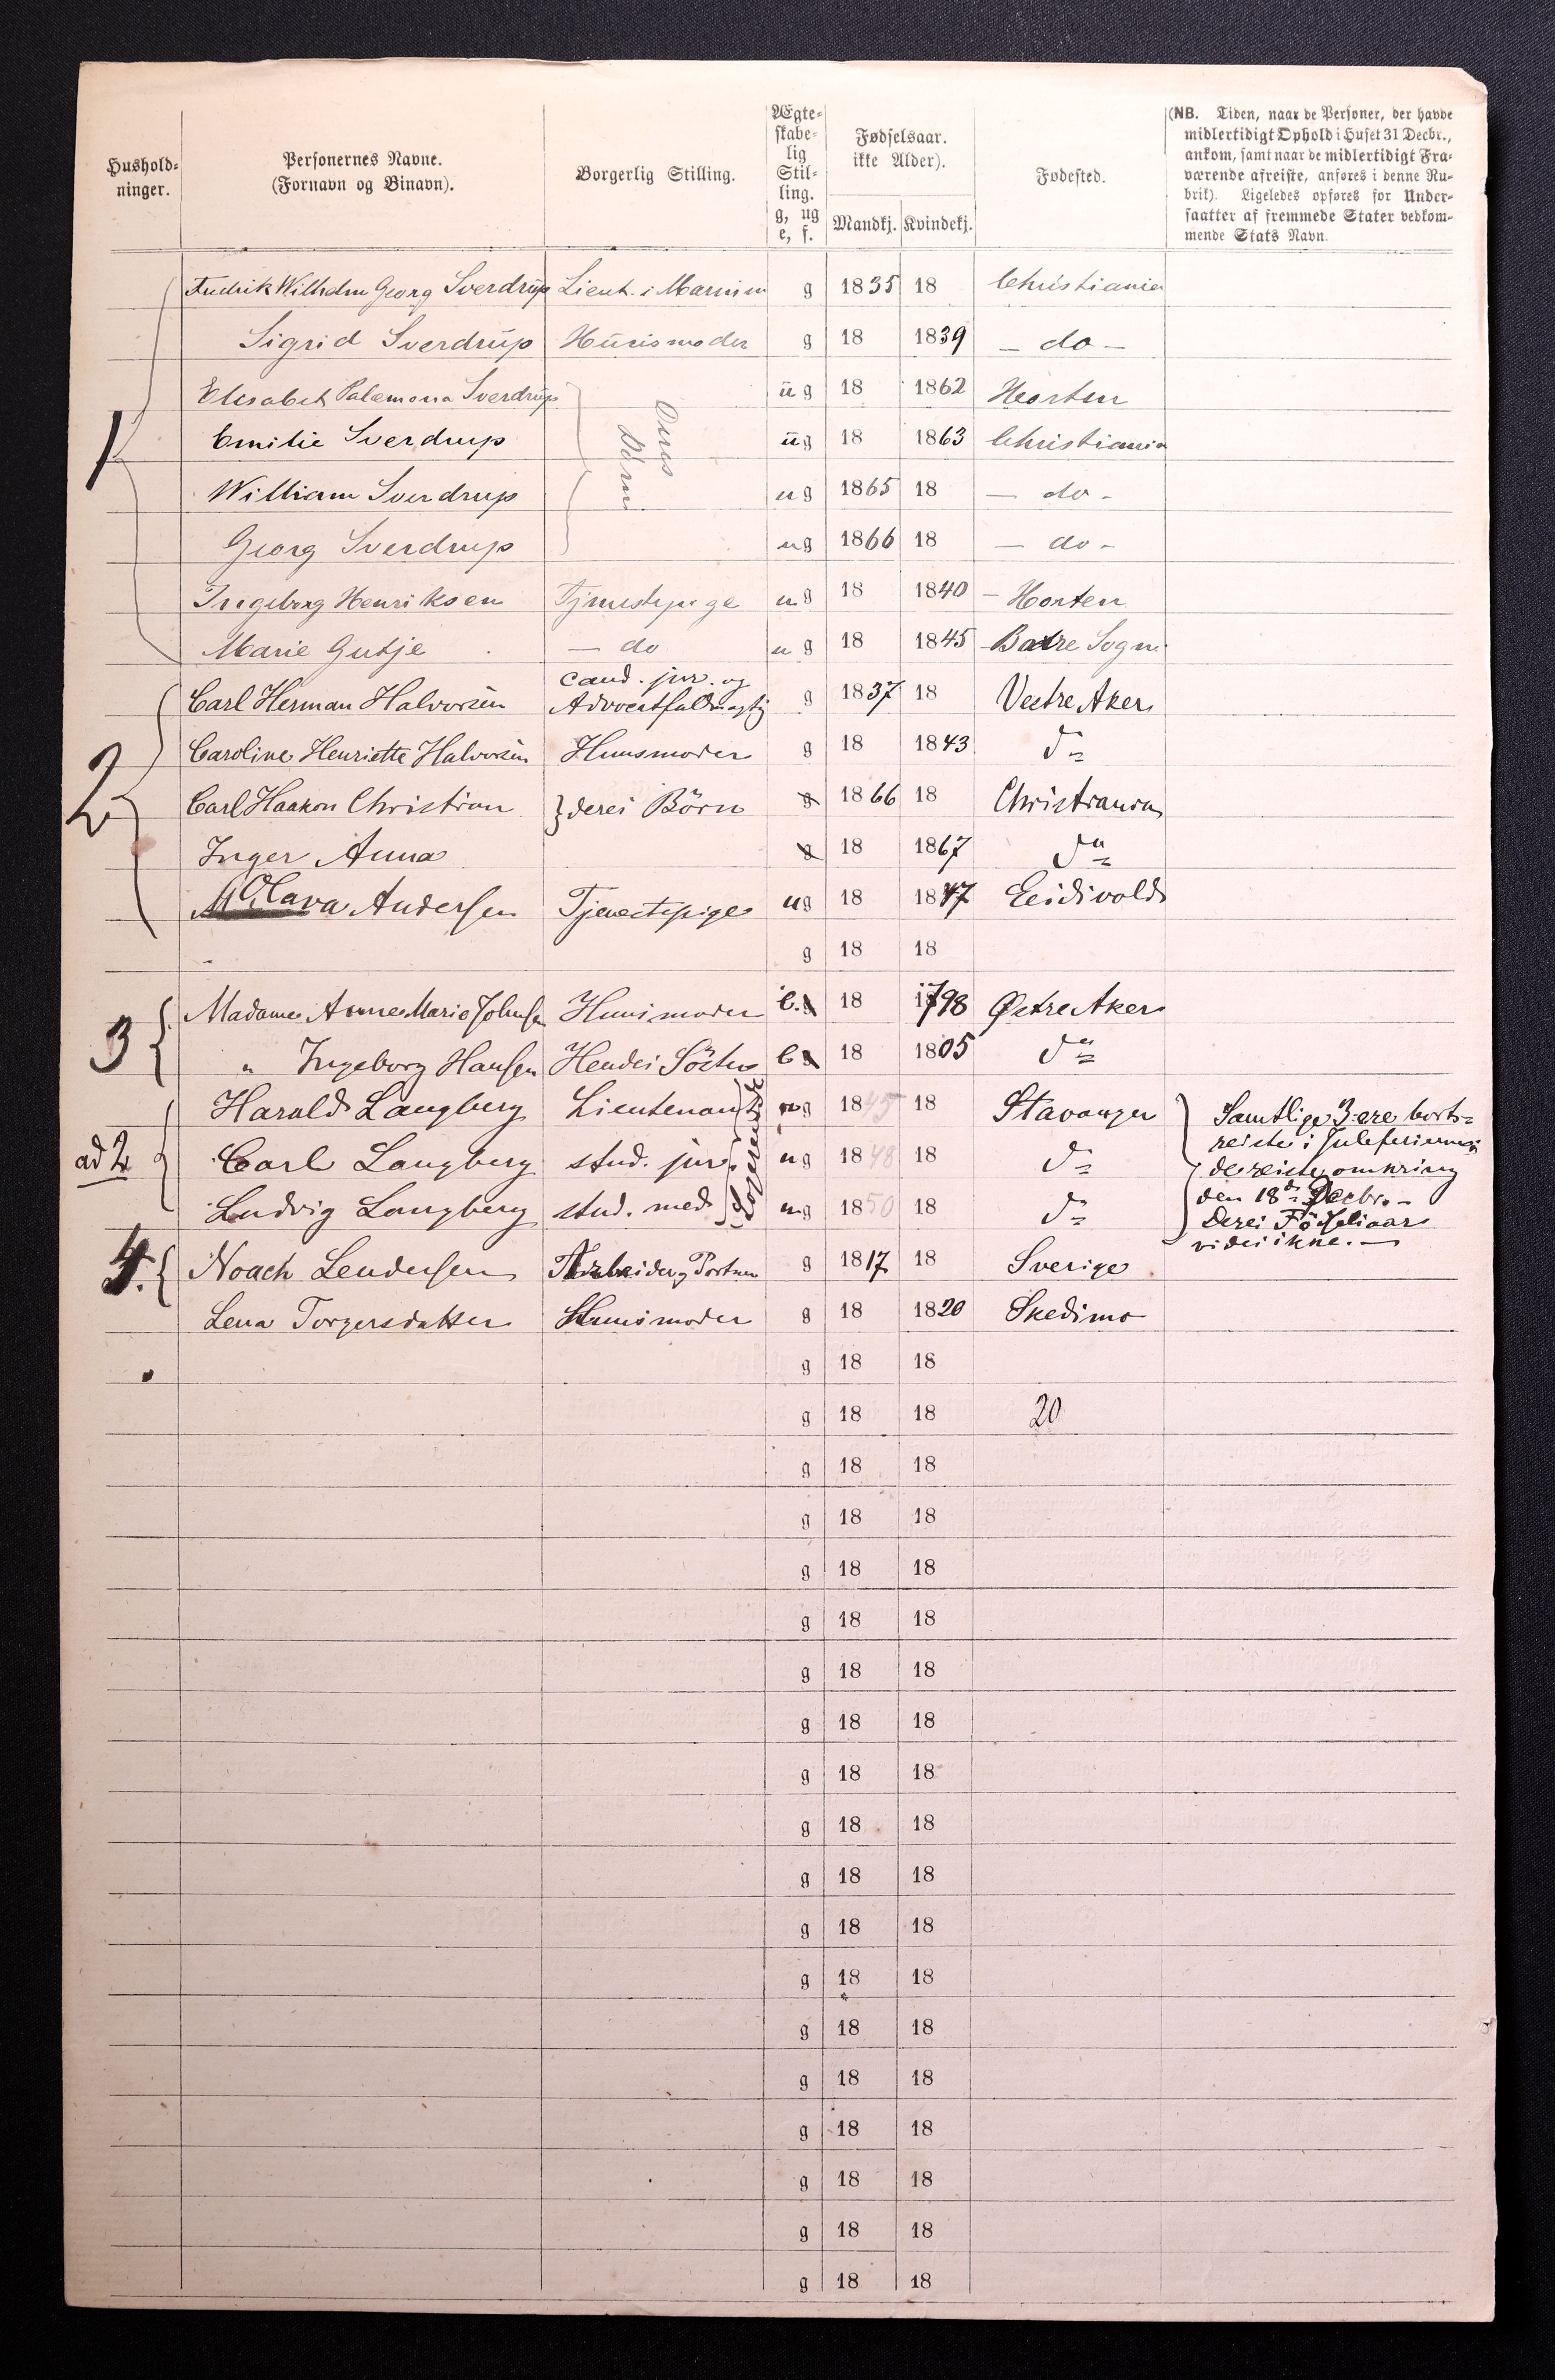 Hushold-
ninger.
Personernes Navne.
(Fornavn og Binavn).
Borgerlig Stilling.
Ægte-
skabe-
lig
Stil-
ling.
g, ug
e, f.
Fødselsaar.
ikke Alder).
Mandkj. Kvindekj.
Fødested.
(NB. Tiden, naar de Personer, der havde
midlertidigt Ophold i Huset 31 Decbr.,
ankom, samt naar de midlertidigt Fra-
værende afreiste, anføres i denne Ru-
brik). Ligeledes opføres for Under-
saatter af fremmede Stater vedkom-
mende Stats Navn.
1
Fredrik Wilhelm Georg Sverdrup Lieut. i Marinen g 1835 18 Christiania
Sigrid Sverdrup Huusmoder g 18 1839 – do –
Elisabet Palæmona Sverdrup ug 18 1862 Horten
Deres
Börn
Emilie Sverdrup ug 18 1863 Christiania
William Sverdrup ug 1865 18 – do –
Georg Sverdrup ug 1866 18 – do –
Ingeborg Henriksen Tjenestepige ug 18 1840 – Horten
Marie Gutje – do ug 18 1845 Sogn
2
cand. jur. og
Carl Herman Halvorsen Advocatfuldmægtig g 1837 18 Vestre Aker
Caroline Henriette Halvorsen Huusmoder g 18 1843 do
Carl Haakon Christian } deres Börn g 1866 18 Christiania
Inger Anna g 18 1867 do
Olava Andersen Tjenestepige ug 18 1847 Eidsvold
g 18 18
3
Madame Anne Marie Johnsen Huusmoder e. 18 1798 Østre Aker
" Ingeborg Hansen Hendes Söster e 18 1805 do
ad 2
Harald Langberg Lieutenant ug 1845 18 Stavanger
Logerende
Carl Langberg stud. jur. ug 1848 18 do
Ludvig Langberg stud. med ug 1850 18 do
Samtlige 3 ere borts-
reiste i Juleferierne
de reiste omkring
den 18de Decbr. –
Deres Födselsaar
vides ikke. –
4.
Noach Lendersen Arbeider, Portner g 1817 18 Sverige
Lena Torgersdatter Huusmoder g 18 1820 Skedsmo
g 18 18
g 18 18 20
g 18 18
g 18 18
g 18 18
g 18 18
g 18 18
g 18 18
g 18 18
g 18 18
g 18 18
g 18 18
g 18 18
g 18 18
g 18 18
g 18 18
g 18 18
g 18 18
g 18 18